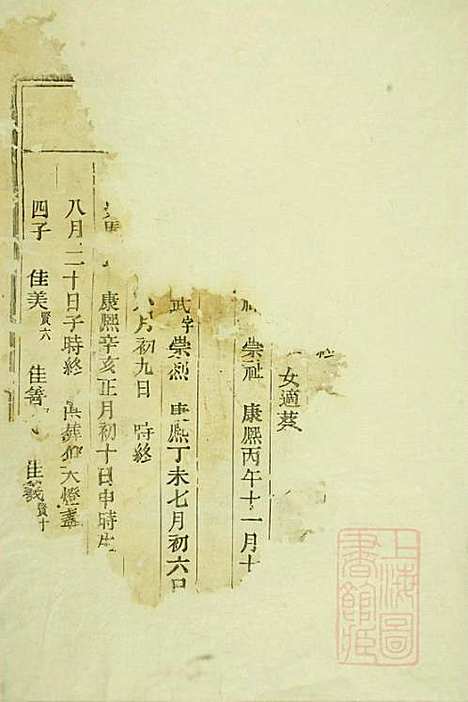 女適蔡
崇祉 康熙丙午十一月十
武 字崇烈 康熙丁未七月初六日
八月初九日 時終
康熙辛亥正月初十日申時生
八月二十日子時終 俱葬 大燈盞
四子 佳美 賢六 佳 佳義 賢十
上海圖書館藏